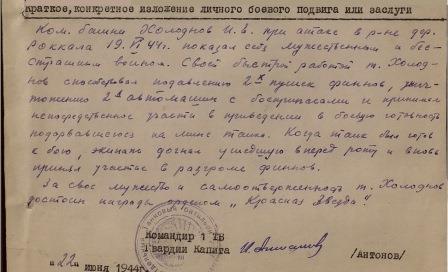 Краткое, конкретное изложение личного боевого подвига или заслуги
Ком. башни Холоднов И.В. при атаке в р-не дер.
Роккала 19.VI 44г. показал себя мужественным и бес-
страшным воином. Своей быстрой работой т. Холод-
нов способствовал подавлению 2х пушек финнов, унич-
тожению 2х автомашин с боеприпасами и принимал
непосредственное участие в приведении в боевую готовность
подорвавшегося на мине танка. Когда танк был готов
к бою, экипаж догнал ушедшую вперед роту и вновь
принял участие в разгроме финнов.
За свое мужество и самоотверженность т. Холоднов
достоин награды орденом „Красная Звезда"
Командир 1 ТБ
Гвардии Капита
/Антонов/
"22" июня 1944